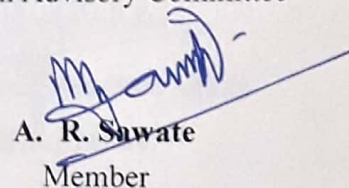 Advisory Committee
A. R. Sawate
Member